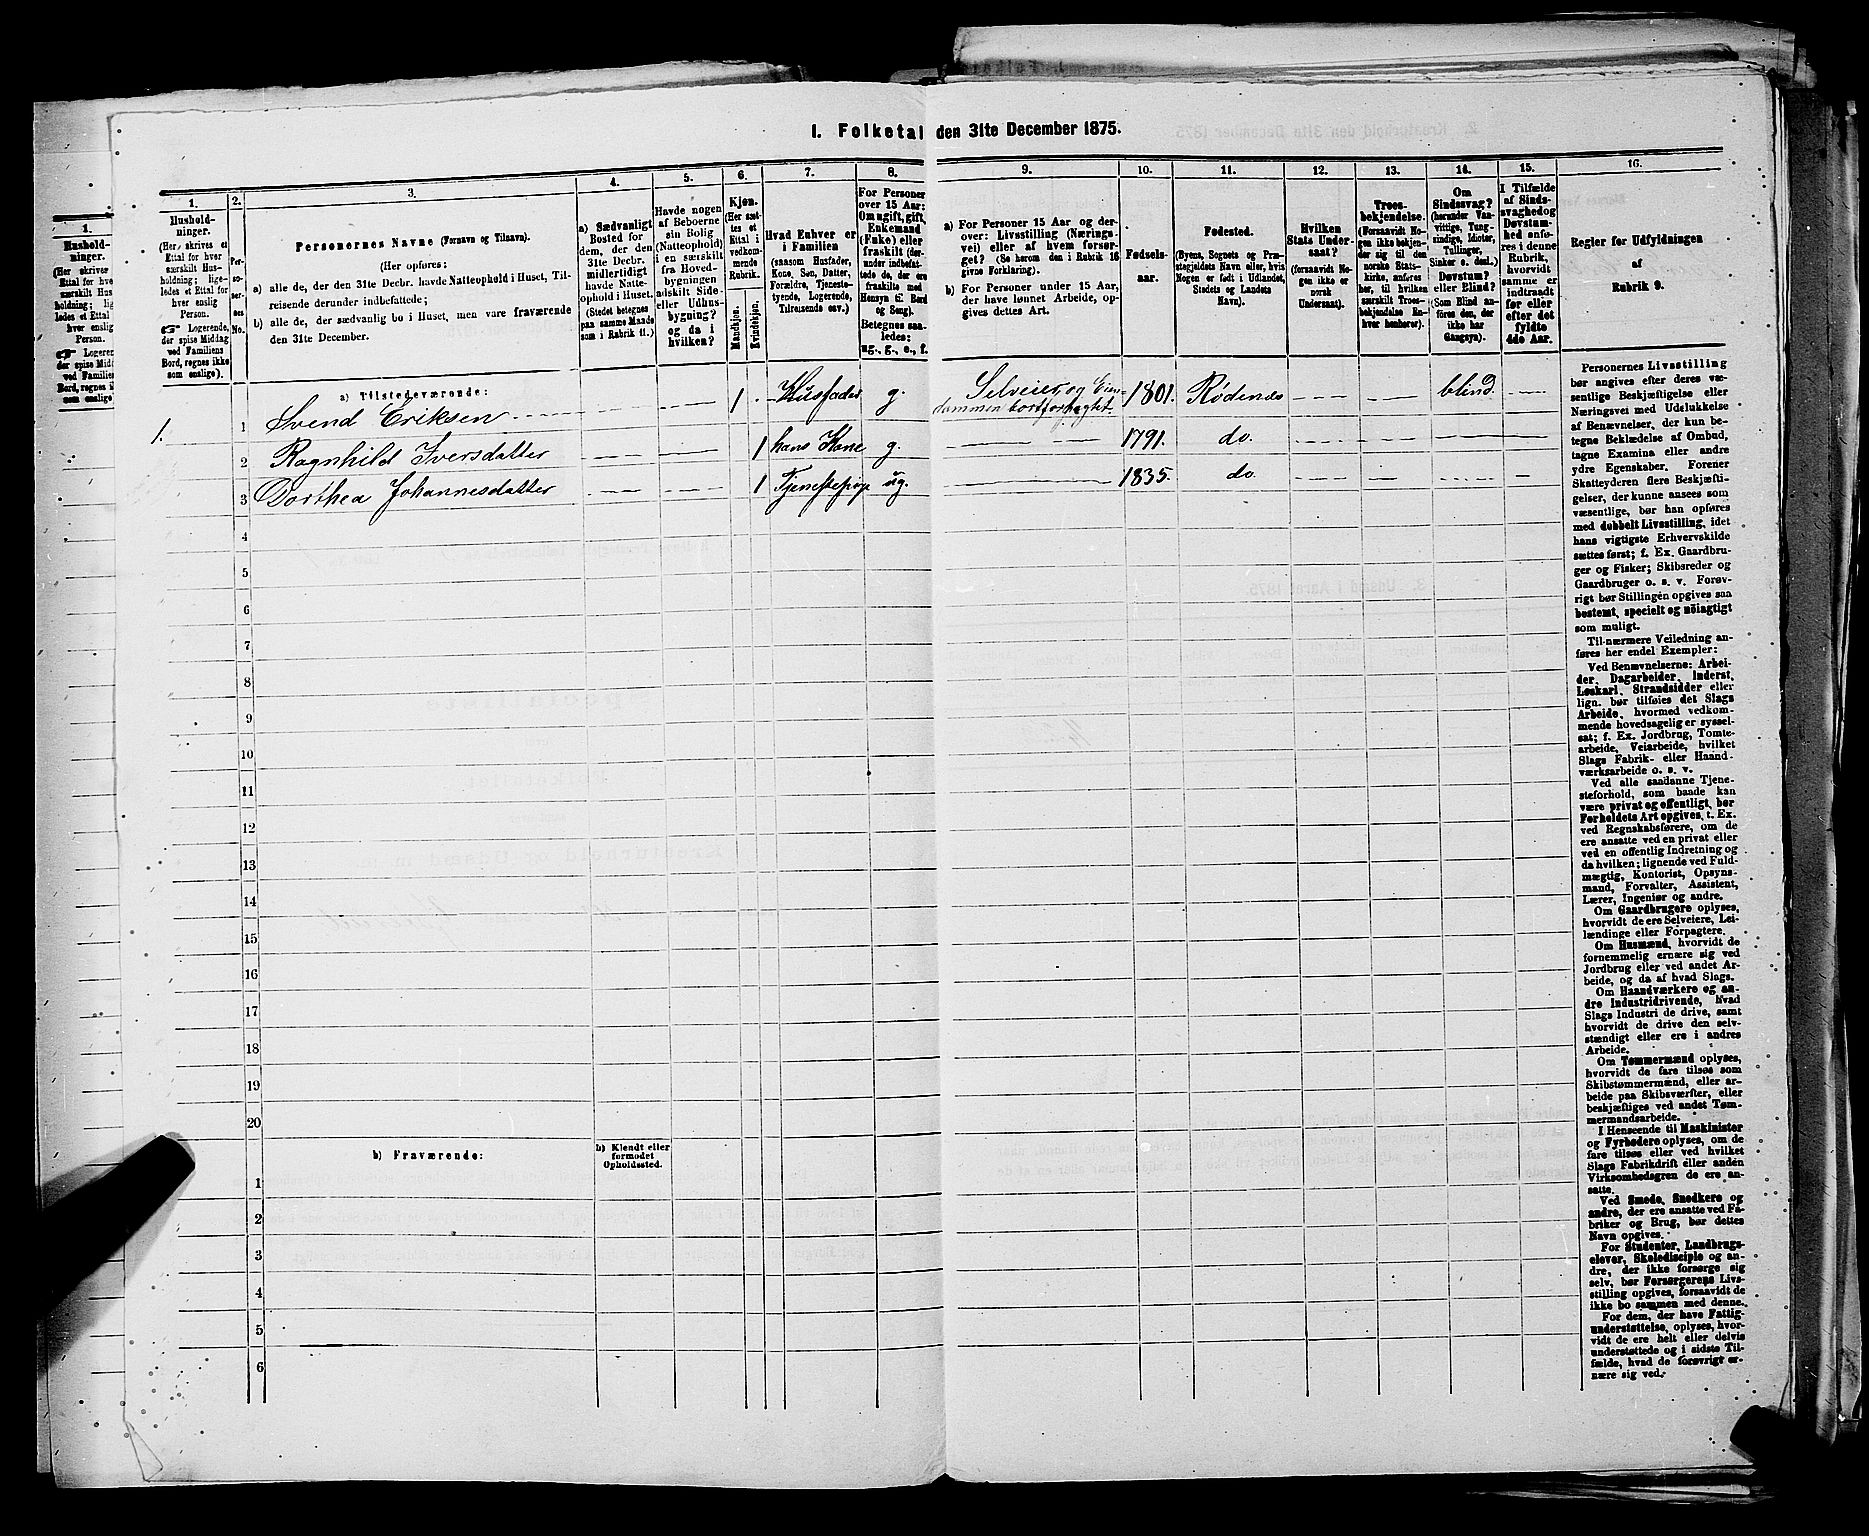 I. Folketal den 31te December 1875.
1.
Husholdninger.
(Her skrives et Ettal for hver særskilt Husholdning; ligeledes et Ettal for hver enslig Person.
☞ Logerende, der spise Middag ved Familiens Bord, regnes ikke som enslige).
2.
Personernes No.
3.
Personernes Navne (Fornavn og Tilnavn).
(Her opføres:
a) alle de, der den 31te Decbr. havde Natteophold i Huset, Tilreisende derunder indbefattede;
b) alle de, der sædvanlig bo i Huset, men vare fraværende den 31te December.
4.
a) Sædvanligt Bosted for dem, der den 31te Decbr. midlertidigt havde Natteophold i Huset. (Stedet betegnes paa samme Maade som i Rubrik 11.)
5.
Havde nogen af Beboerne sin Bolig (Natteophold) i en særskilt fra Hovedbygningen adskilt Side- eller Udhusbygning? og da i hvilken?
6.
Kjøn.
(Her sættes et Ettal i vedkommende Rubrik.
Mandkjøn.
Kvindekjøn.
7.
Hvad Enhver er i Familien
(saasom Husfader, Kone, Søn, Datter, Forældre, Tjenestetyende, Logerende, Tilreisende osv.)
8.
For Personer over 15 Aar: Om ugift, gift, Enkemand (Enke) eller fraskilt (derunder indbefattede de, der ere fraskilte med Hensyn til Bord og Seng).
Betegnes saaledes: ug., g., e., f.
9.
a) For Personer 15 Aar og derover: Livsstilling (Næringsvei) eller af hvem forsørget? (Se herom den i Rubrik 16 givne Forklaring).
b) For Personer under 15 Aar, der have lønnet Arbeide, opgives dettes Art.
10.
Fødselsaar.
11.
Fødested.
(Byens, Sognets og Præstegjeldets Navn eller, hvis Nogen er født i Udlandet, Stedets og Landets Navn).
12.
Hvilken Stats Undersaat?
(forsaavidt Nogen ikke er norsk Undersaat).
13.
Troesbekjendelse.
(Forsaavidt Nogen ikke bekjender sig til den norske Statskirke, anføres her, til hvilken særskilt Troesbekjendelse Enhver henhører).
14.
Om Sindssvag? (herunder Vanvittige, Tungsindige, Idioter, Tullinger, Sinker o. desl.). Døvstum? eller Blind? (Som Blind anføres den, der ikke har Gangsyn).
15.
I Tilfælde af Sindssvaghed og Døvstumhed anføres i denne Rubrik, hvorvidt samme er indtraadt før eller efter det fyldte 4de Aar.
16.
Regler for Udfyldningen af Rubrik 9.
a) Tilstedeværende:
1. 1 Svend Eriksen 1 Husfader g. Selveier, og Eiendommen bortforpagtet 1801. Rødenes blind
2 Ragnhild Iversdatter 1 hans Kone g. 1791. do.
3 Dorthea Johannesdatter 1 Tjenestepige ug. 1835. do.
4
5
6
7
8
9
10
11
12
13
14
15
16
17
18
19
20
b) Fraværende:
b) Kjendt eller formodet Opholdssted.
1
2
3
4
5
6
Personernes Livsstilling
bør angives efter deres væsentlige Beskjæftigelse eller
Næringsvei med Udelukkelse
af Benævnelser, der kun betegne Beklædelse af Ombud,
tagne Examina eller andre
ydre Egenskaber. Forener
Skatteyderen flere Beskjæftigelser, der kunne ansees som
væsentlige, bør han opføres
med dobbelt Livsstilling, idet
hans vigtigste Erhvervskilde
sættes først; f. Ex. Gaardbruger og Fisker; Skibsreder og
Gaardbruger o. s. v. Forøvrigt bør Stillingen opgives saa
bestemt, specielt og nøiagtigt
som muligt.
Til nærmere Veiledning anføres her endel Exempler:
Ved Benævnelserne: Arbeider, Dagarbeider, Inderst,
Løskarl, Strandsidder eller
lign. bør tilføies det Slags
Arbeide, hvormed vedkommende hovedsagelig er sysselsat; f. Ex. Jordbrug, Tomtearbeide, Veiarbeide, hvilket
Slags Fabrik- eller Haandværksarbeide o. s. v.
Ved alle saadanne Tjenesteforhold, som baade kan
være privat og offentligt, bør
Forholdets Art opgives, t. Ex.
ved Regnskabsførere, om de
ere ansatte ved en privat eller
ved en offentlig Indretning og
da hvilken; lignende ved Fuldmægtig, Kontorist, Opsynsmand, Forvalter, Assistent,
Lærer, Ingeniør og andre.
Om Gaardbrugere oplyses,
hvorvidt de ere Selveiere, Leilændinge eller Forpagtere.
Om Husmænd, hvorvidt de
fornemmelig ernære sig ved
Jordbrug eller ved andet Arbeide, og da af hvad Slags.
Om Haandværkere og andre Industridrivende, hvad
Slags Industri de drive, samt
hvorvidt de drive den selvstændigt eller ere i andres
Arbeide.
Om Tømmermænd oplyses,
hvorvidt de fare tilsøs som
Skibstømmermænd, eller arbeide paa Skibsværfter, eller
beskjæftiges ved andet Tømmermandsarbeide.
I Henseende til Maskinister
og Fyrbødere oplyses, om de
fare tilsøs eller ved hvilket
Slags Fabrikdrift eller anden
Virksomhedsgren de ere ansatte.
Ved Smede, Snedkere og
andre, der ere ansatte ved Fabriker og Brug, bør dettes
Navn opgives.
For Studenter, Landbrugselever, Skoledisciple og andre, der ikke forsørge sig
selv, bør Forsørgerens Livsstilling opgives, forsaavidt de
ikke bo sammen med denne.
For dem, der have Fattigunderstøttelse, oplyses, hvorvidt de ere helt eller delvis
understøttede og i sidste Tilfælde, hvad de forøvrigt ernære sig ved.